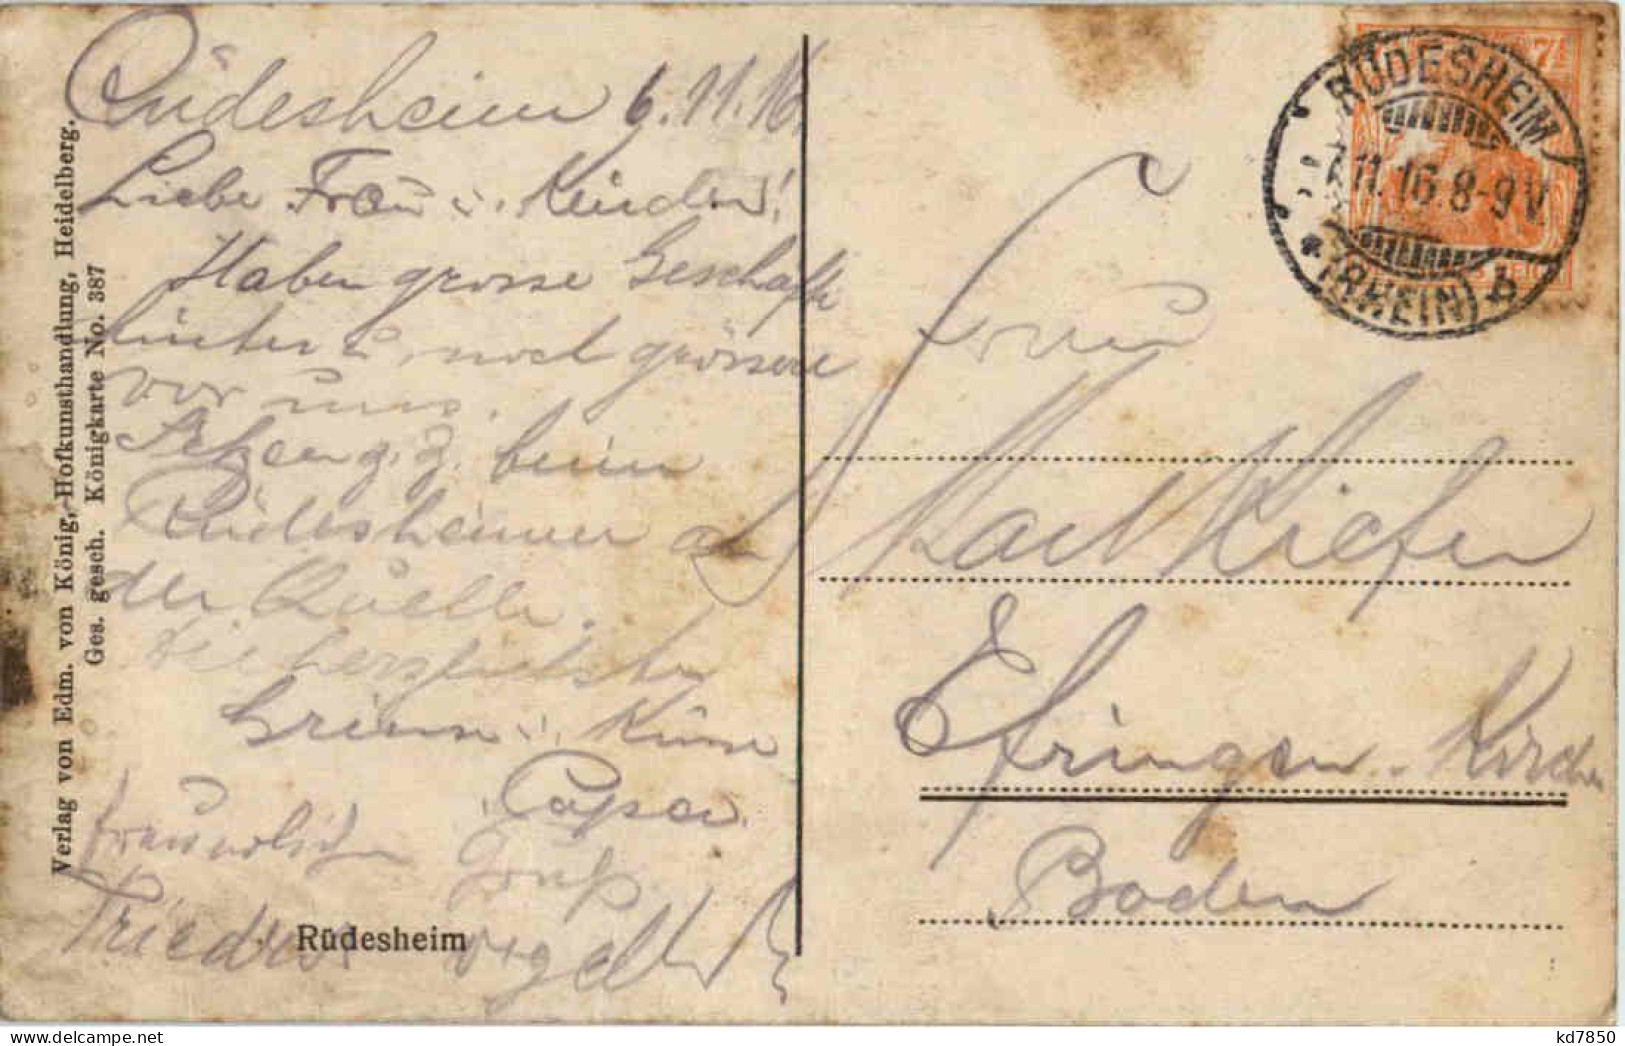 Rüdesheim 6.11.16.
Liebe Frau u. Kinder!
Haben grosse Geschäfte
hinter u. noch grössere
vor uns.
Sitzen z. Z. beim
Rüdesheimer an
der Quelle.
Die herzlichsten
Grüsse u. Küsse
Papa.
Gruß
Rüdesheim
Verlag von Edm. von König, Hofkunsthandlung, Heidelberg.
Ges. gesch. Königkarte No. 387
RÜDESHEIM
7.11.16.8-9V.
*(RHEIN) b
Frau
Karl Kiefer
Efringen-Kirchen
Baden
kd7850